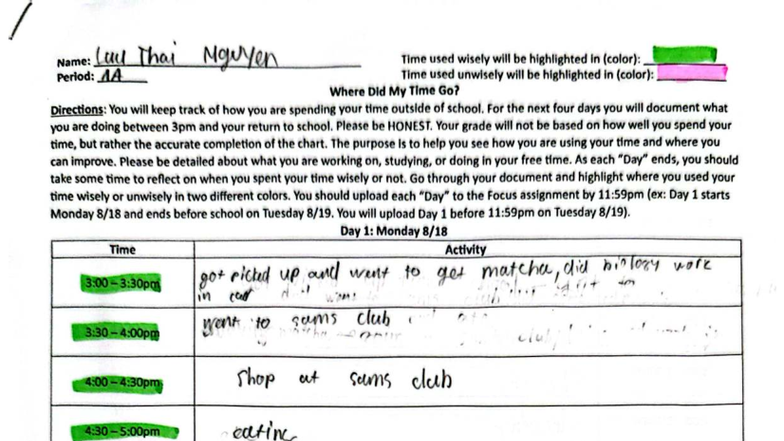 Name: Luu Thai Nguyen
Time used wisely will be highlighted in (color):
Period: 1A
Time used unwisely will be highlighted in (color):
Where Did My Time Go?
Directions: You will keep track of how you are spending your time outside of school. For the next four days you will document what
you are doing between 3pm and your return to school. Please be HONEST. Your grade will not be based on how well you spend your
time, but rather the accurate completion of the chart. The purpose is to help you see how you are using your time and where you
can improve. Please be detailed about what you are working on, studying, or doing in your free time. As each "Day" ends, you should
take some time to reflect on when you spent your time wisely or not. Go through your document and highlight where you used your
time wisely or unwisely in two different colors. You should upload each "Day" to the Focus assignment by 11:59pm (ex: Day 1 starts
Monday 8/18 and ends before school on Tuesday 8/19. You will upload Day 1 before 11:59pm on Tuesday 8/19).
Day 1: Monday 8/18
Time Activity
3:00 – 3:30pm got picked up and went to get matcha, did biology work
in car
3:30 – 4:00pm went to sams club
4:00 – 4:30pm shop at sams club
4:30 – 5:00pm eating